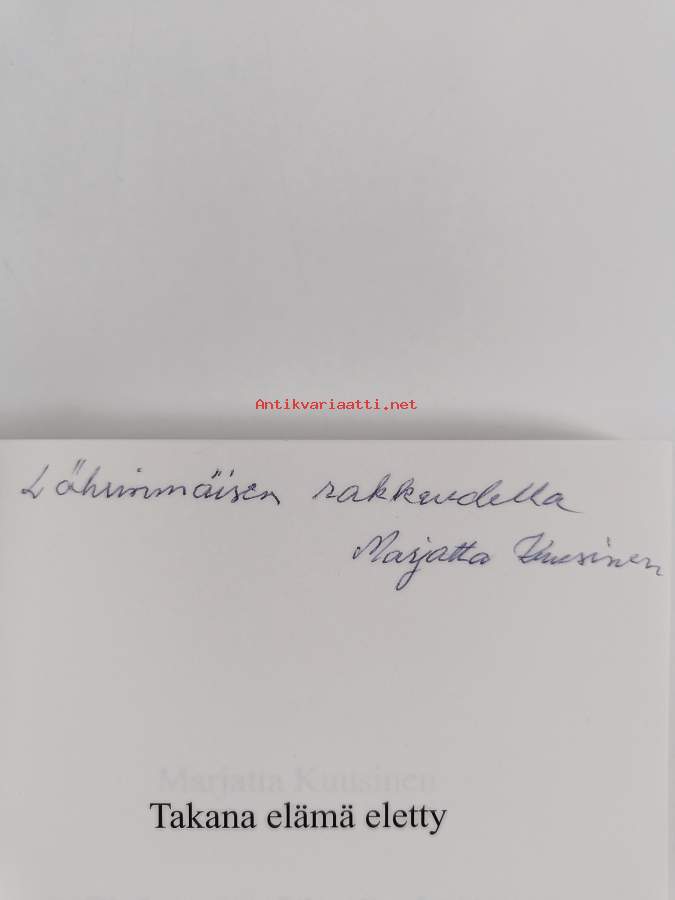 Antikvariaatti.net
Lähimmäisen rakkaudella
Marjatta Kuusinen
Marjatta Kuusinen
Takana elämä eletty